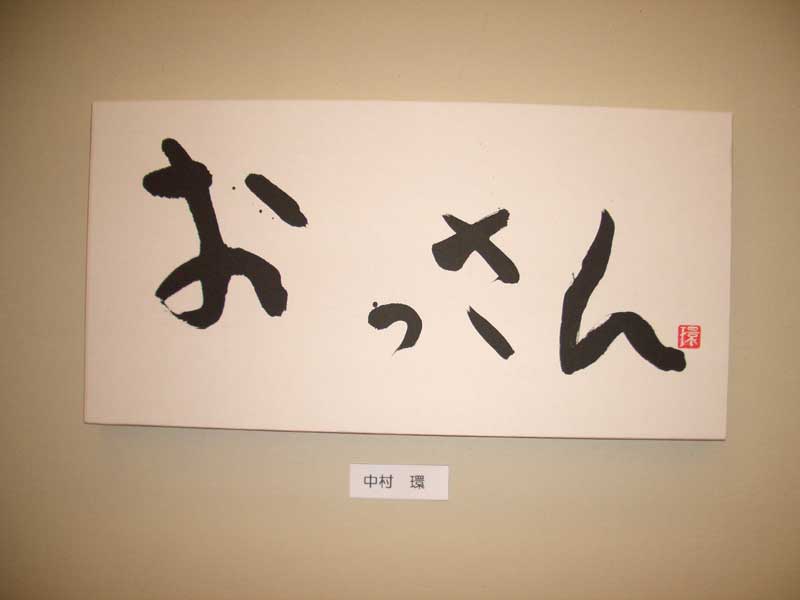 おっさん
環
中村 環